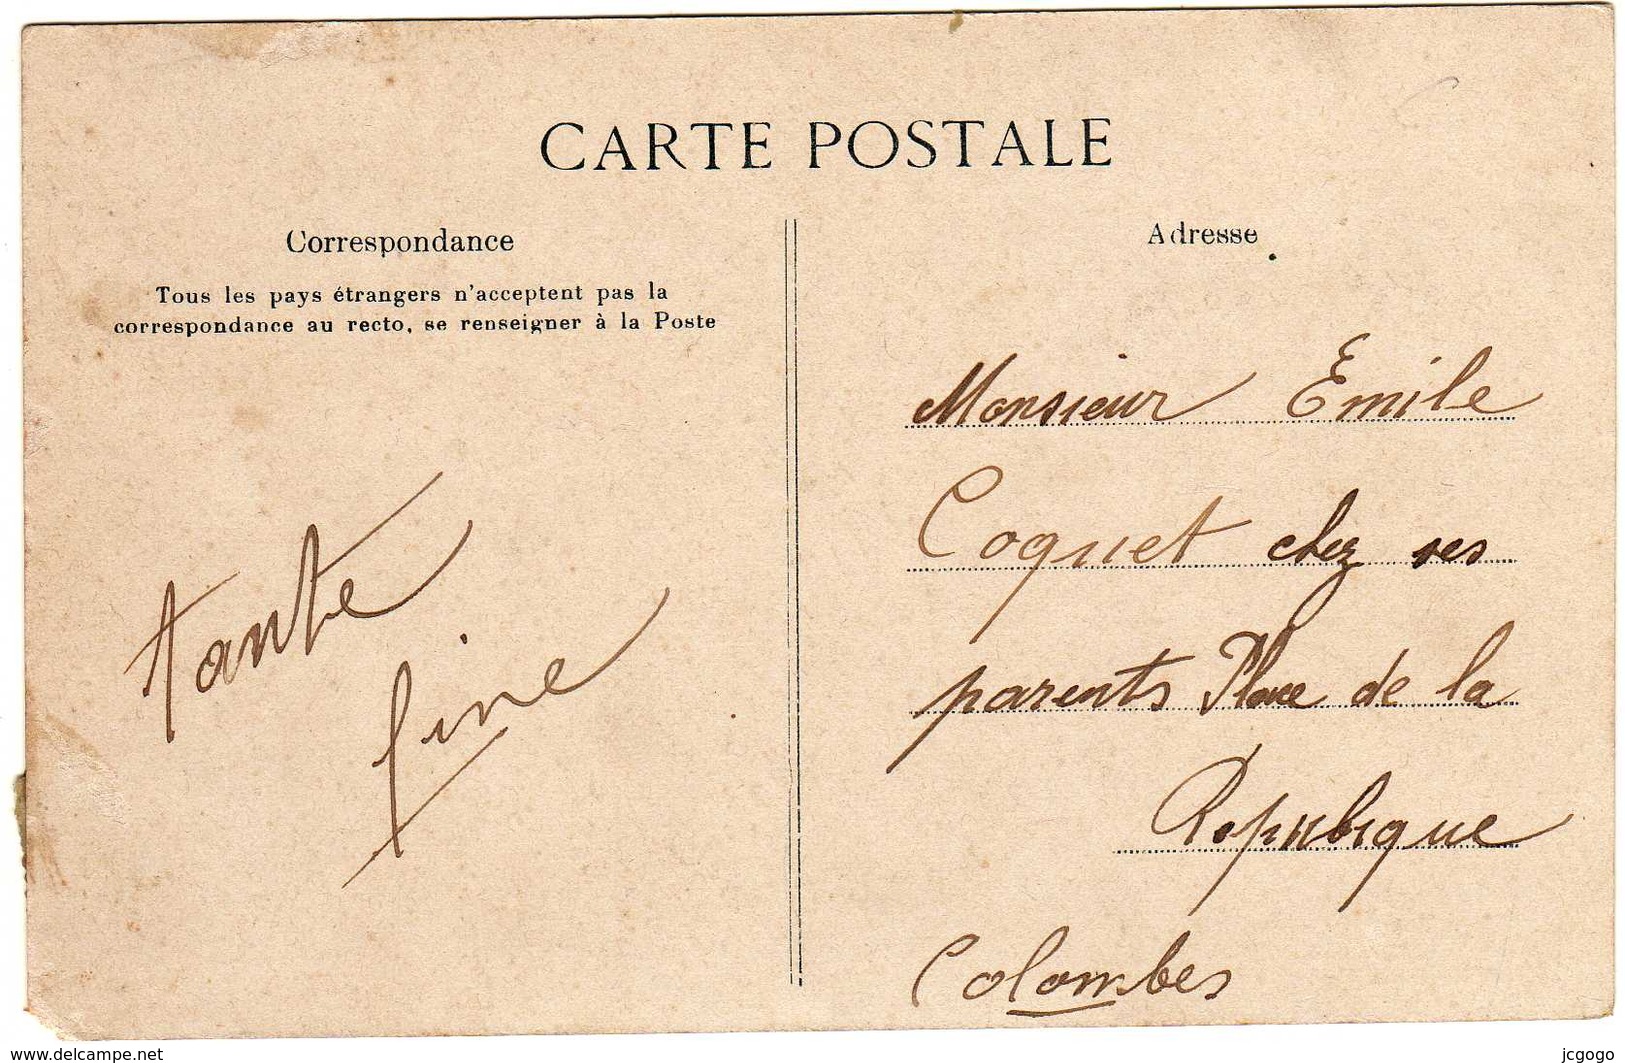 CARTE POSTALE
Correspondance
Tous les pays étrangers n'acceptent pas la
correspondance au recto, se renseigner à la Poste
tante
fine
Adresse
Monsieur Emile
Coquet chez ses
parents Place de la
Repubique
Colombes
www.delcampe.net
jcgogo